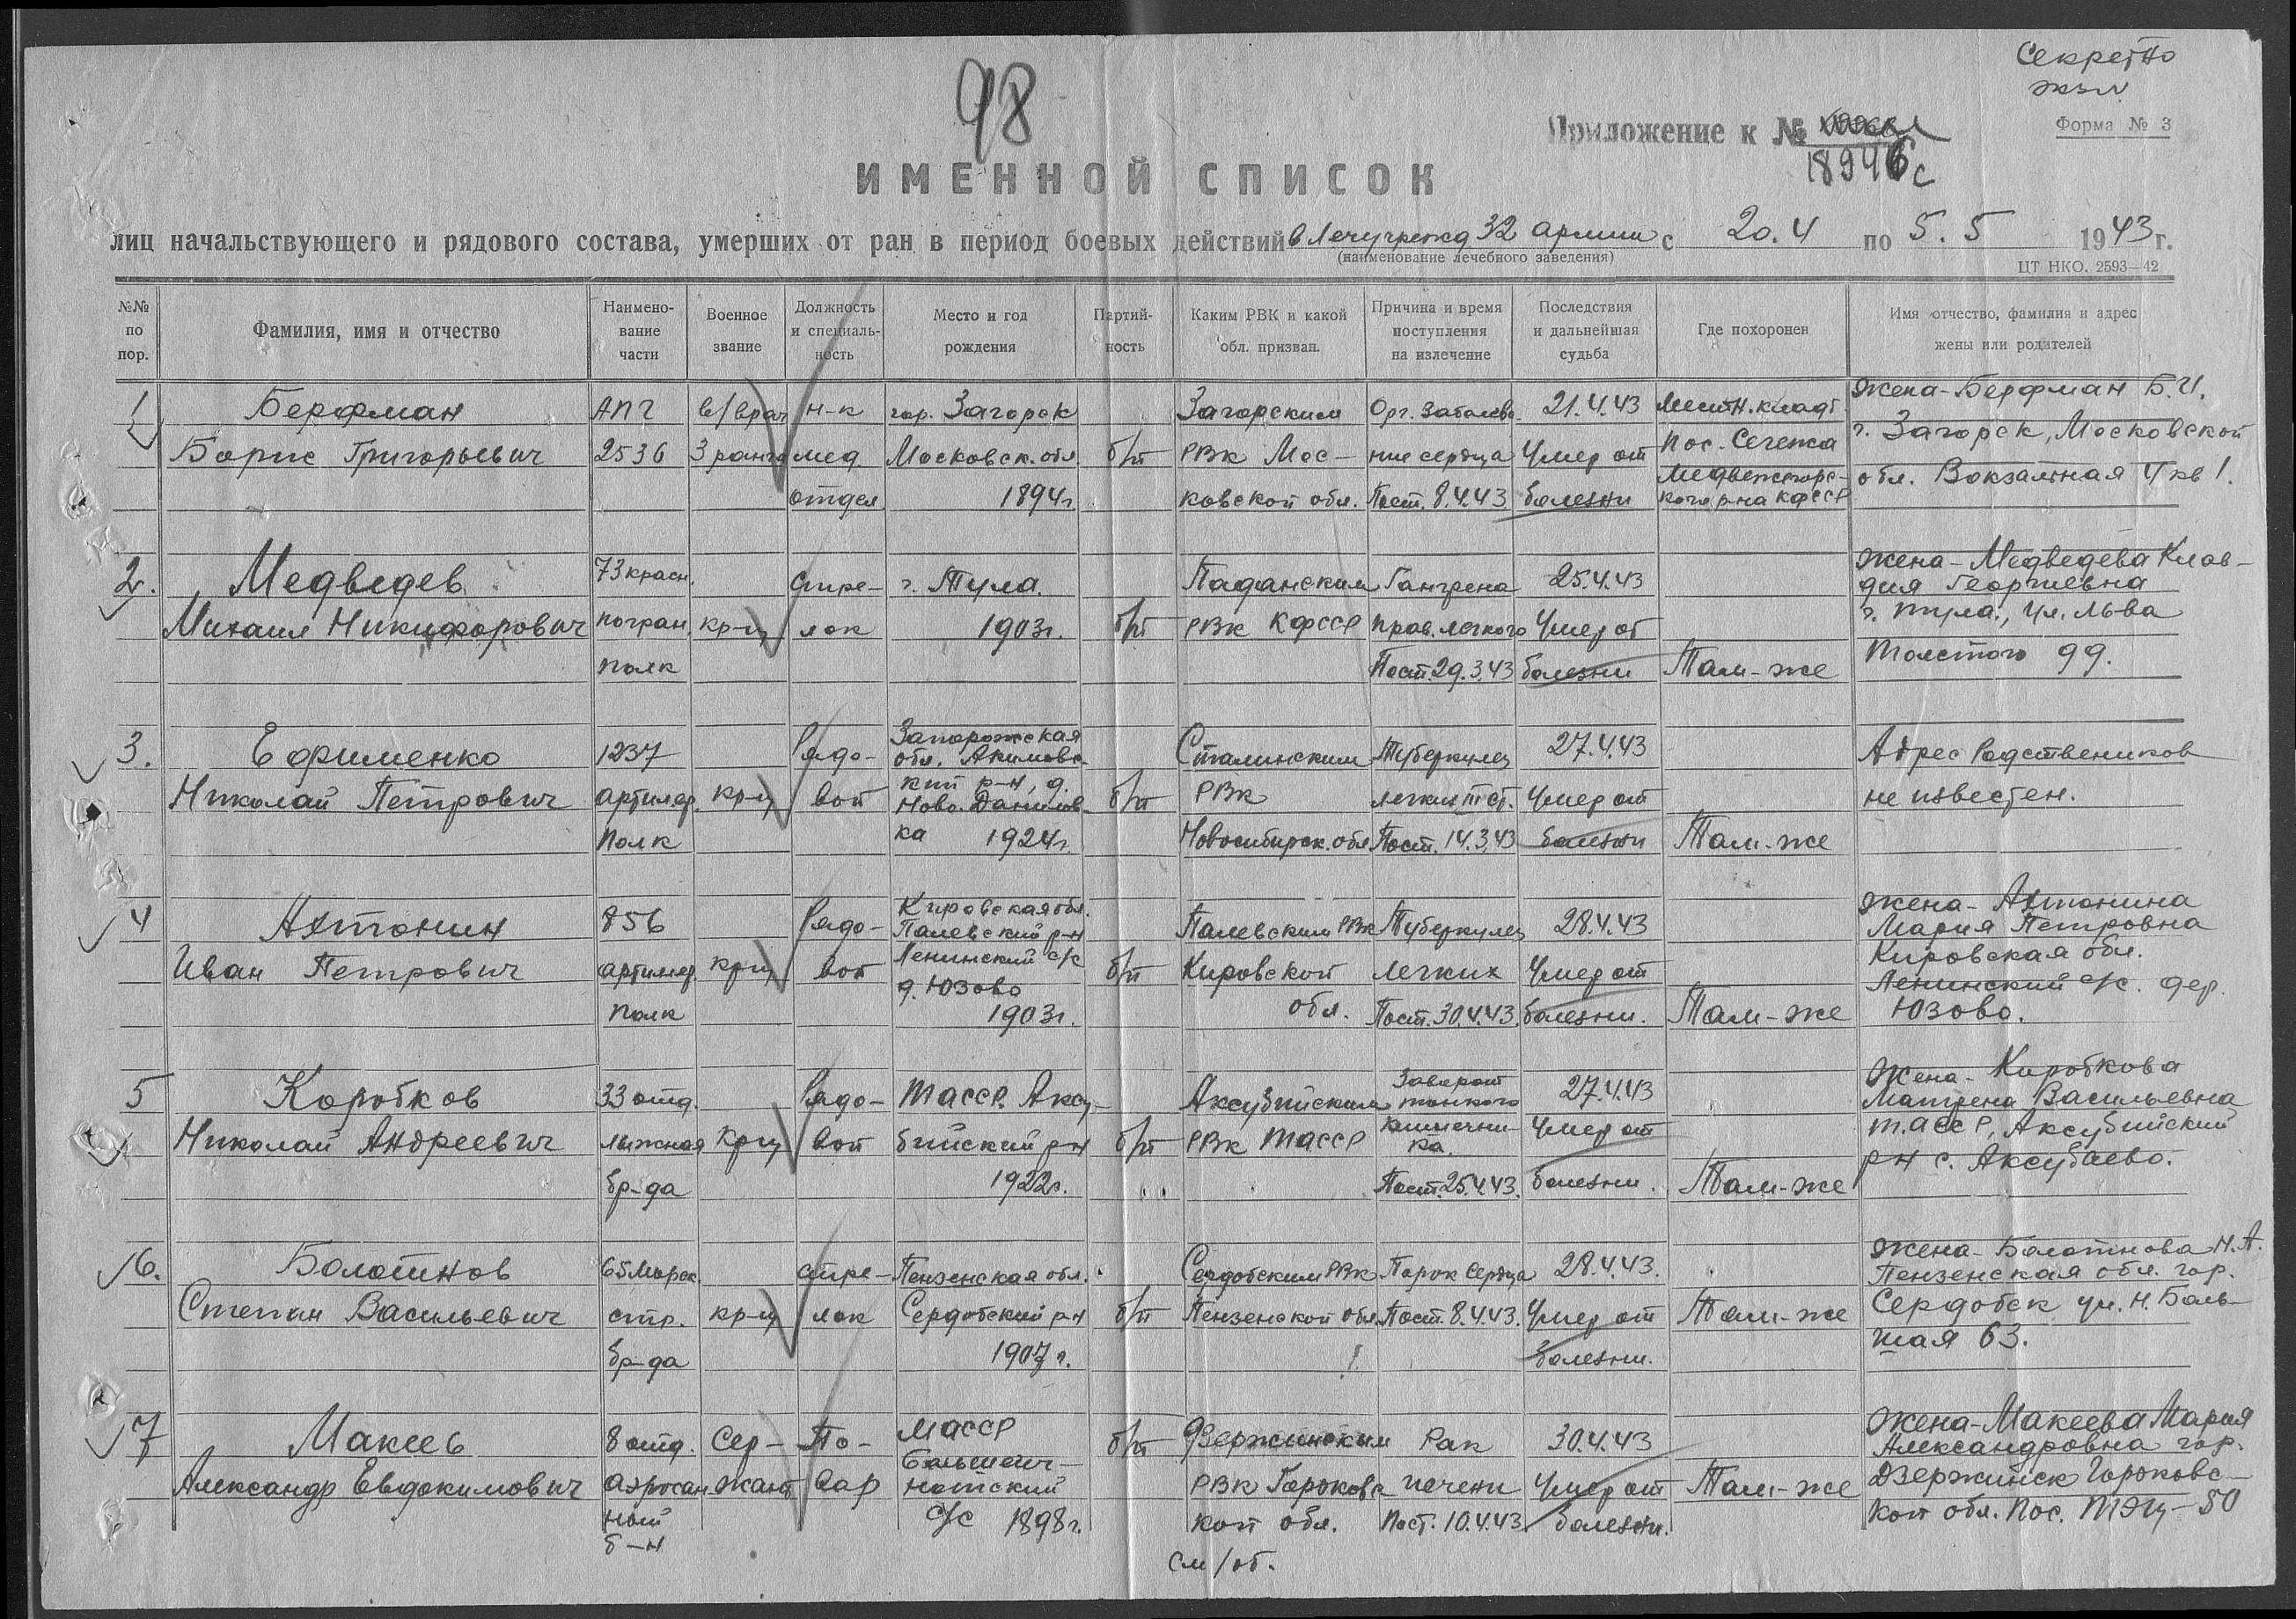 Секретно
экз №
98
Приложение к №
18946с
Форма № 3
ИМЕННОЙ СПИСОК
лиц начальствующего и рядового состава, умерших от ран в период боевых действий в Лечучрежд 32 армии с 20.4 по 5.5 1943 г.
(наименование лечебного заведения)
ЦТ НКО. 2593—42
№№ по пор.
Фамилия, имя и отчество
Наимено-
вание
части
Военное
звание
Должность
и специаль-
ность
Место и год
рождения
Партий-
ность
Каким РВК и какой
обл. призван.
Причина и время
поступления
на излечение
Последствия
и дальнейшая
судьба
Где похоронен
Имя отчество, фамилия и адрес
жены или родителей
1
Берфман
Борис Григорьевич
АПГ
2536
в/врач
3 ранга
н-к
мед.
отдел
гор. Загорск
Московск. обл.
1894г.
б/п
Загорским
РВК Мос-
ковской обл.
Орг. заболева-
ние сердца
Пост. 8.4.43
21.4.43
Умер от
болезни
Местн. кладб.
пос. Сегежа
Медвежьегорс-
кого р-на КФССР
Жена - Берфман Б.И.
г. Загорск, Московской
обл. Вокзальная 4 кв 1.
2.
Медведев
Михаил Никифорович
73 красн.
погран.
полк
кр-ц
Стре-
лок
г. Тула.
1903г.
б/п
Паданским
РВК КФССР
Гангрена
прав. легкого
Пост. 29.3.43
25.4.43
Умер от
болезни
Там-же
Жена - Медведева Клав-
дия Георгиевна
г. Тула, ул. Льва
Толстого 99.
3.
Ефименко
Николай Петрович
1237
артилер.
полк
кр-ц
Рядо-
вой
Запорожская
обл. Акимовс-
кий р-н, д.
Ново-Данилов-
ка 1924г.
б/п
Сталинским
РВК
Новосибирск. обл.
Туберкулез
легких III ст.
Пост. 14.3.43
27.4.43
Умер от
болезни
Там-же
Адрес Родствеников
не известен.
4
Антонин
Иван Петрович
856
артилер.
полк
кр-ц
Рядо-
вой
Кировская обл.
Палевский р-н
Ленинский с/с
д. Юзово
1903г.
б/п
Палевским РВК
Кировской
обл.
Туберкулез
легких
Пост. 30.4.43.
28.4.43
Умер от
болезни.
Там-же
Жена - Антонина
Мария Петровна
Кировская обл.
Ленинский с/с. дер.
Юзово.
5
Коробков
Николай Андреевич
33 отд.
лыжная
бр-да
кр-ц
Рядо-
вой
ТАССР. Аксу-
бийский р-н
1922г.
б/п
Аксубийским
РВК ТАССР
Заворот
тонкого
кишечни-
ка.
Пост. 25.4.43.
27.4.43
Умер от
болезни.
Там-же
Жена - Коробкова
Матрена Васильевна
Т.АССР, Аксубийский
р-н с. Аксубаево.
6.
Болотнов
Степан Васильевич
65 Морск.
стр.
бр-да
кр-ц
стре-
лок
Пензенская обл.
Сердобский р-н
1907г.
б/п
Сердобским РВК
Пензенской обл.
Порок сердца
Пост. 8.4.43.
28.4.43.
Умер от
болезни.
Там-же
Жена - Болотнова Н.А.
Пензенская обл. гор.
Сердобск ул. Н. Боль-
шая 63.
7
Макеев
Александр Евдокимович
8 отд.
аэросан
ный
б-н
Сер-
жант
По-
вар
МАССР
1898г.
с/с
б/п
Дзержинским
РВК Горьковс
кой обл.
Рак
печени
Пост. 10.4.43
30.4.43
Умер от
болезни.
Там-же
Жена - Макеева Мария
Александровна гор.
Дзержинск Горьковс-
кой обл. Пос. ТЭЦ - 50
см/об.